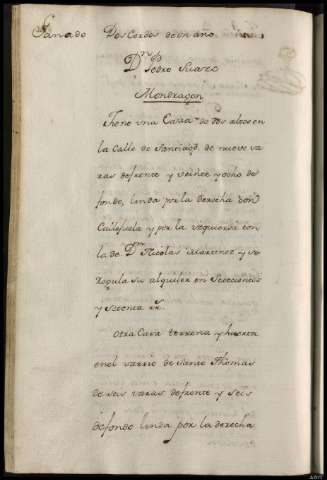 Ganado Dos Cerdos de un año
Dn Pedro Suarez
Mondragon
Tiene una Casa de dos altos en
la Calle de Santiago de nueve va
ras de frente y veinte y ocho de
fondo, linda por la derecha con
Callejuela y por la izquierda con
la de Dn Nicolas Martinez y se
regula su alquiler en Setecientos
y setenta Rs
Otra Casa terrena y huerta
en el varrio de Santo Thomas
de seis varas de frente y seis
de fondo linda por la derecha